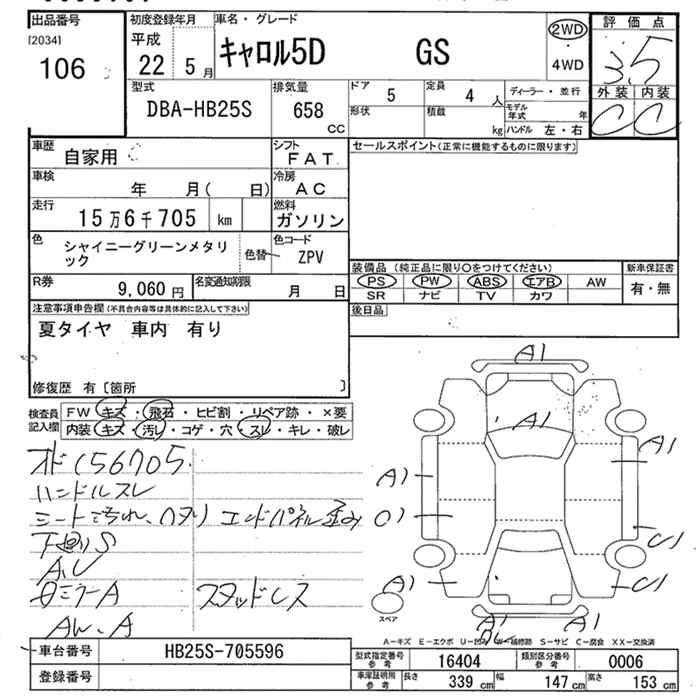 出品番号
[2034]
106
初度登録年月
平成
22 5月
車名・グレード
キャロル5D GS
2WD
・
4WD
評価点
3.5
外装 内装
C C
型式
DBA-HB25S
排気量
658
CC
ドア
5
定員
4 人
形状
積載
kg
ディーラー・並行
モデル年式 年
ハンドル 左・右
車歴
自家用
シフト
FAT
セールスポイント(正常に機能するものに限ります)
車検
年 月( 日)
冷房
AC
走行
15万6千705 km
燃料
ガソリン
色
シャイニーグリーンメタリ
ック
色替
色コード
ZPV
装備品 (純正品に限り〇をつけてください)
新車保証書
PS PW ABS エアB AW
有・無
SR ナビ TV カワ
R券
9,060円
名変通知期限
月 日
後日品
注意事項申告欄(不具合内容等は具体的に記入して下さい)
夏タイヤ 車内 有り
修復歴 有〔箇所 〕
検査員
記入欄
FW キズ・飛石・ヒビ割・リペア跡・×要
内装 キズ・汚レ・コゲ・穴・スレ・キレ・破レ
156705
ハンドルスレ
シート
エンドパネル歪み
下廻りS
A,U
ミラーA
スタッドレス
A1
A1
A1
A1
A1
C1
A1
C1
A1
A1
スペア
A-キズ E-エクボ U-凹ミ W-補修跡 S-サビ C-腐食 XX-交換済
車台番号
HB25S-705596
登録番号
型式指定番号
参考
16404
類別区分番号
参考
0006
車庫証明用
参考
長さ
339 cm
幅
147 cm
高さ
153 cm